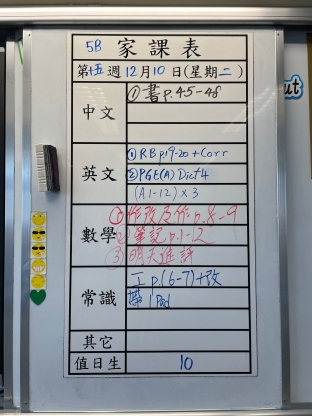 5B 家課表
第15週12月10日(星期二)
中文
①書p.45-48
英文
①RB p.19-20+Corr
②PGE(A) Dict 4
(A1-12)×3
數學
①修改及作p.8-9
②筆記p.1-12
③明天進評
常識
工p.(6-7)+改
帶iPad
其它
值日生
10